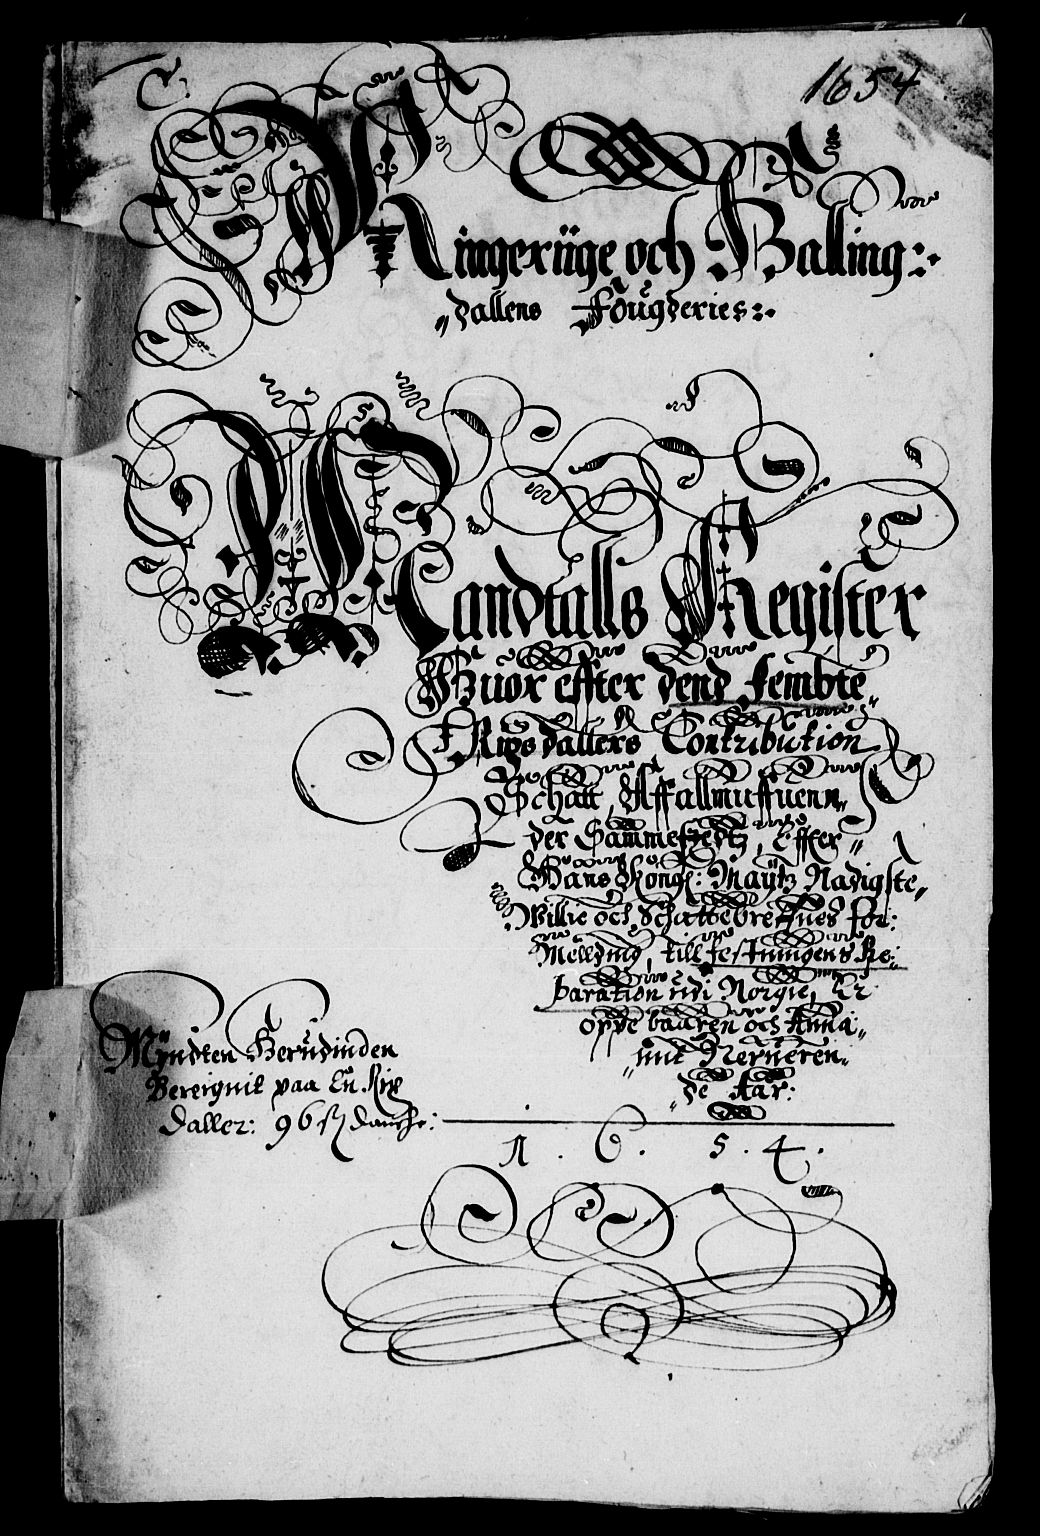 C.
1654
Ringeriige och Halling:
dallens Fougderies:
Mandtalls Register
Huor effter dend fembte
Rigsdallers Contribution
Schatt, Affallmuffuenn
der Sammestedtz, Effter
Hans Kong: Mayttz Nadigste
Willie och Schattebreffues for:
Melding, till festningens Re:
paration udi Norgie, Er
oppebaaren och Anna:
mit Nerueren
de Aar:
Myndten Herudinden
Beregnit paa En Rix
daller: 96 ß danske:
1.6.5.4.